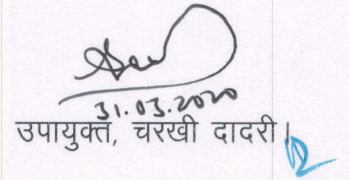 31.03.2020
उपायुक्त, चरखी दादरी।